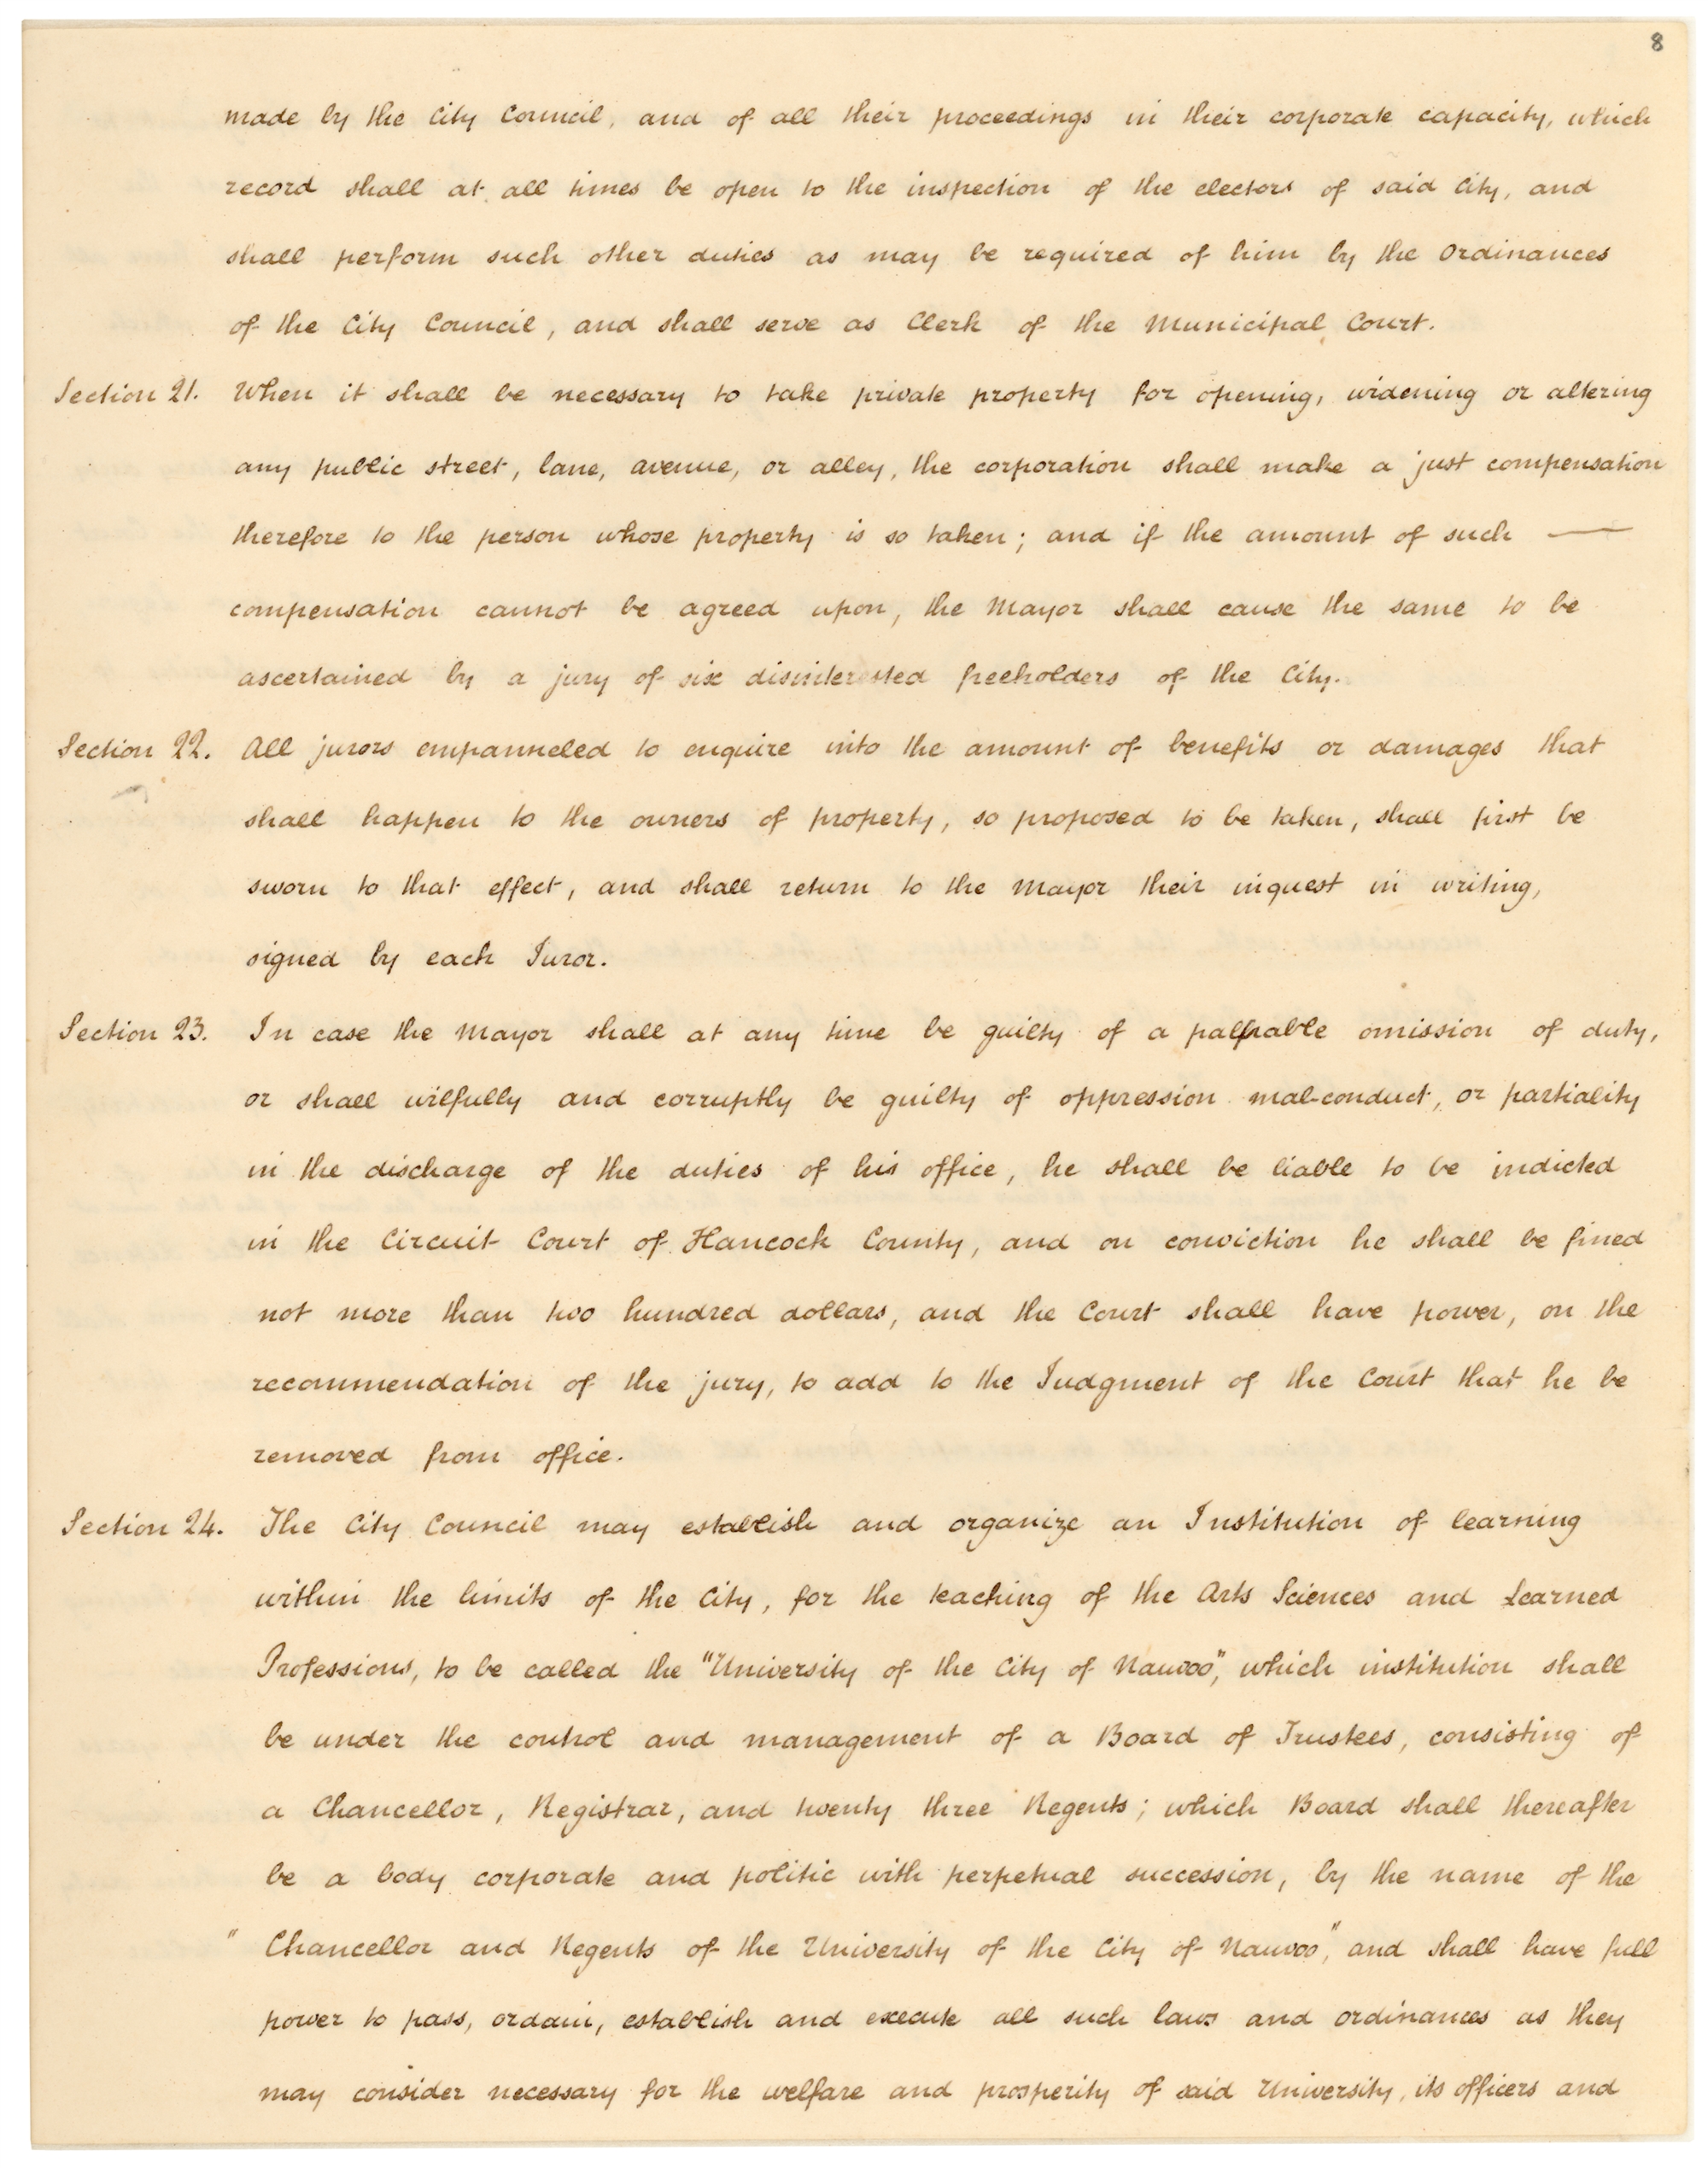 8
made by the City Council, and of all their proceedings in their corporate capacity, which
record shall at all times be open to the inspection of the electors of said City, and
shall perform such other duties as may be required of him by the Ordinances
of the City Council, and shall serve as Clerk of the Municipal Court.
Section 21. When it shall be necessary to take private property for opening, widening or altering
any public street, lane, avenue, or alley, the corporation shall make a just compensation
therefore to the person whose property is so taken; and if the amount of such —
compensation cannot be agreed upon, the Mayor shall cause the same to be
ascertained by a jury of six disinterested freeholders of the City.
Section 22. All jurors empanneled to enquire into the amount of benefits or damages that
shall happen to the owners of property, so proposed to be taken, shall first be
sworn to that effect, and shall return to the Mayor their inquest in writing,
signed by each Juror.
Section 23. In case the Mayor shall at any time be guilty of a palpable omission of duty,
or shall wilfully and corruptly be guilty of oppression mal-conduct, or partiality
in the discharge of the duties of his office, he shall be liable to be indicted
in the Circuit Court of Hancock County, and on conviction he shall be fined
not more than two hundred dollars, and the Court shall have power, on the
recommendation of the jury, to add to the Judgment of the Court that he be
removed from office.
Section 24. The City Council may establish and organize an Institution of learning
within the limits of the City, for the teaching of the Arts Sciences and Learned
Professions, to be called the "University of the City of Nauvoo", which institution shall
be under the control and management of a Board of Trustees, consisting of
a Chancellor, Registrar, and twenty three Regents; which Board shall thereafter
be a body corporate and politic with perpetual succession, by the name of the
" Chancellor and Regents of the University of the City of Nauvoo", and shall have full
power to pass, ordain, establish and execute all such laws and ordinances as they
may consider necessary for the welfare and prosperity of said University, its officers and